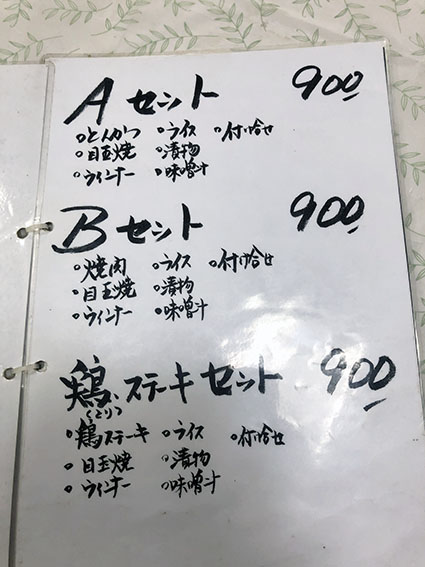 Aセット 900
○とんかつ ○ライス ○付け合せ
○目玉焼 ○漬物
○ウィンナー ○味噌汁
Bセット 900
○焼肉 ○ライス ○付け合せ
○目玉焼 ○漬物
○ウィンナー ○味噌汁
鶏ステーキセット 900
(とり)
○鶏ステーキ ○ライス ○付け合せ
○目玉焼 ○漬物
○ウィンナー ○味噌汁